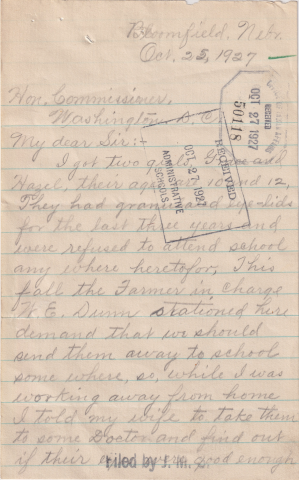 Bloomfield, Nebr.
Oct. 25, 1927
Hon. Commissioner,
Washington, D. C.
My dear Sir:-
I got two and
Hazel, their ages 10 and 12,
They had granulated eye-lids
for the last three years and
were refused to attend school
any where heretofor, This
fall the Farmer in Charge
W. E. Dunn stationed here
demand that we should
send them away to school
some where, so, while I was
working away from home
I told my wife to take them
to some Doctor and find out
if their eyes were good enough
RECEIVED
OCT 27 1927
50118
RECEIVED
OCT 27 1927
ADMINISTRATIVE
SCHOOLS
Filed by J. M.